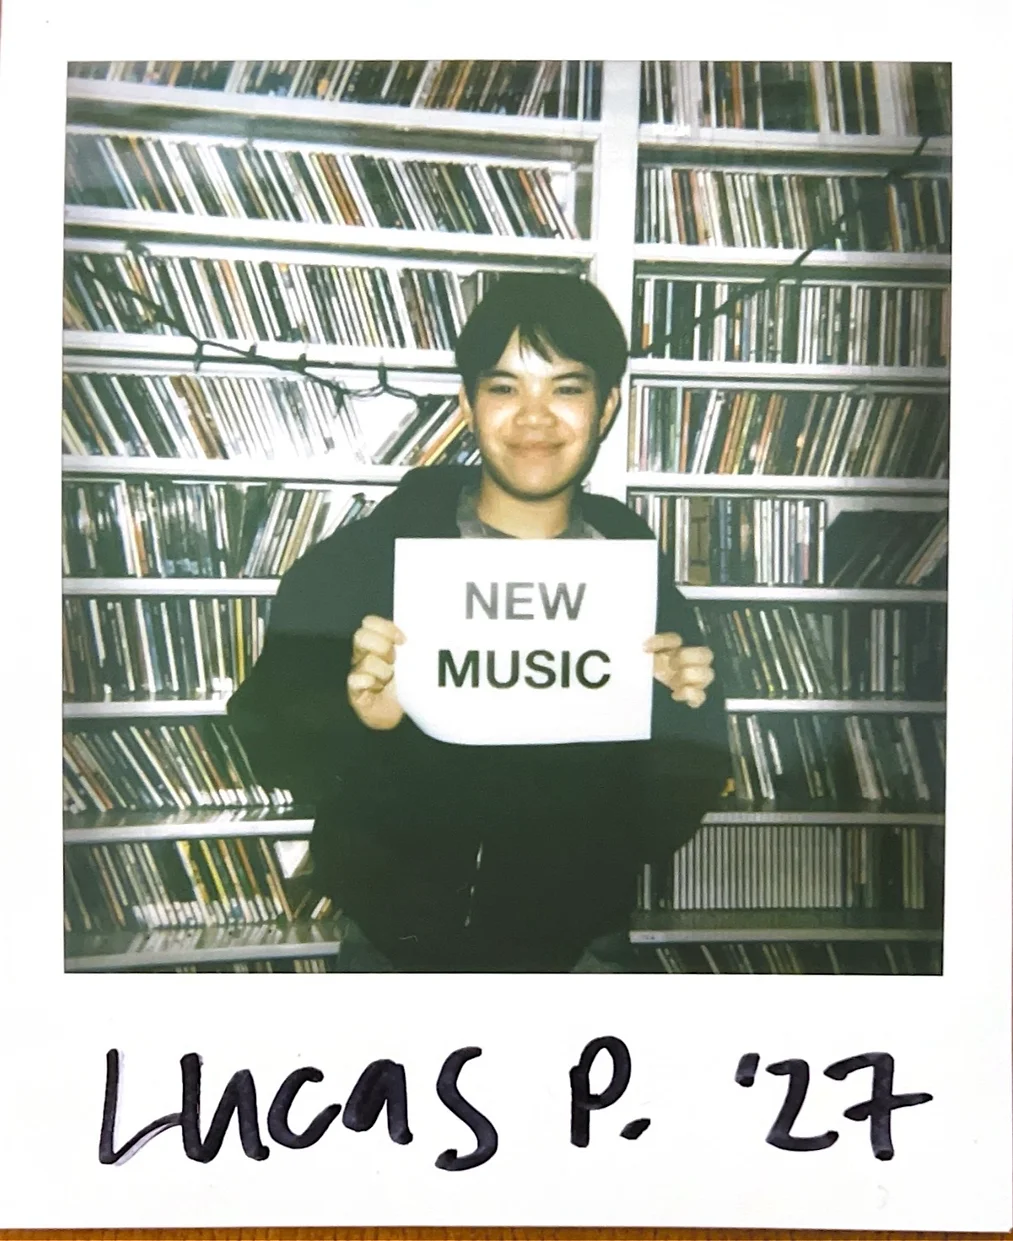 NEW
MUSIC
LUCAS P. '27